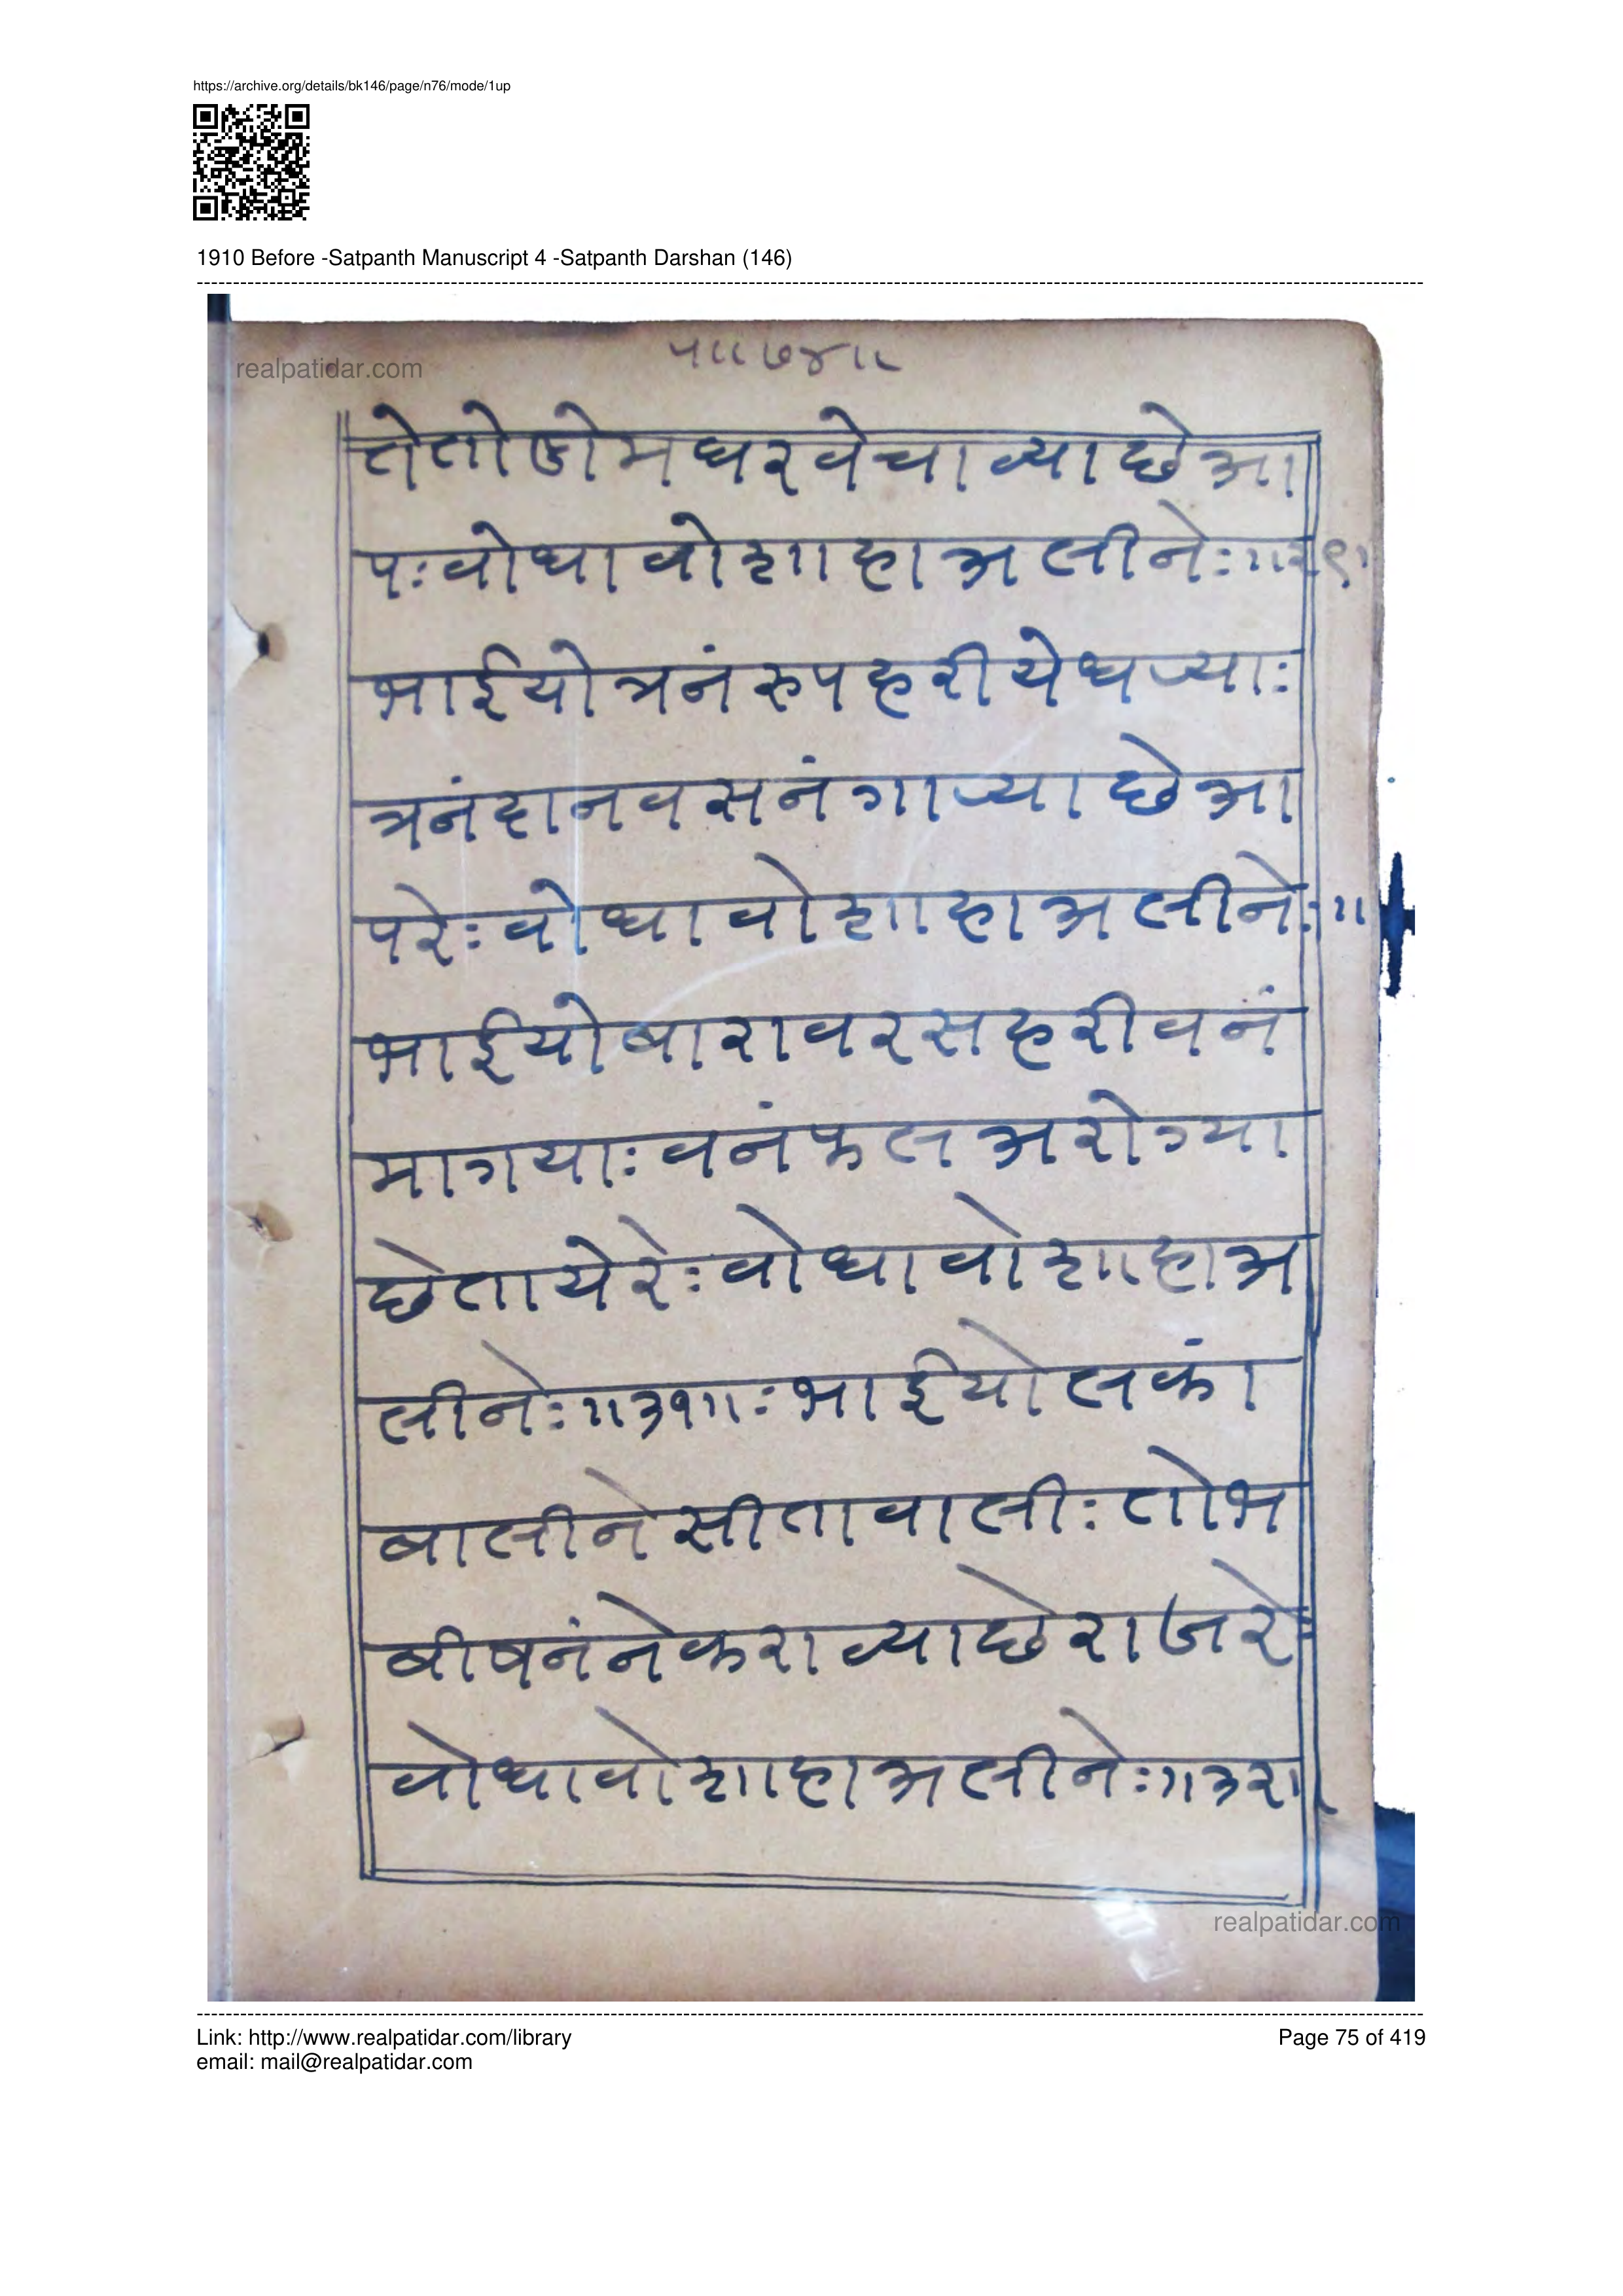 https://archive.org/details/bk146/page/n76/mode/1up
1910 Before -Satpanth Manuscript 4 -Satpanth Darshan (146)
realpatidar.com
५॥७४॥
तेतोडोमघरवेचाव्याछेआ
पःवोधावोशाहाअलीनेः॥२९॥
भाईयोत्रनंरुपहरीयेधज्याः
त्रनंदानवसनंगाज्याछेआ
परेःवोधावोशाहाअलीनेः॥
भाईयोबारावरसहरीवनं
मागयाःवनंफलअरोग्या
छेतायेरेःवोधावोशाहाअ
लीनेः॥३१॥ःभाईयोलकां
बालीनेसीतावालीःतोभ
बीषनंनेकराव्याछेराजरेः
वोधावोशाहाअलीनेः॥३२॥
realpatidar.com
Link: http://www.realpatidar.com/library
Page 75 of 419
email: mail@realpatidar.com